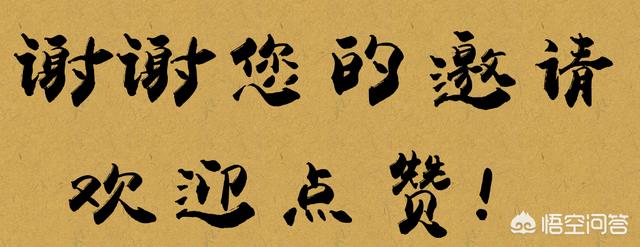 谢谢您的邀请
欢迎点赞!
悟空问答